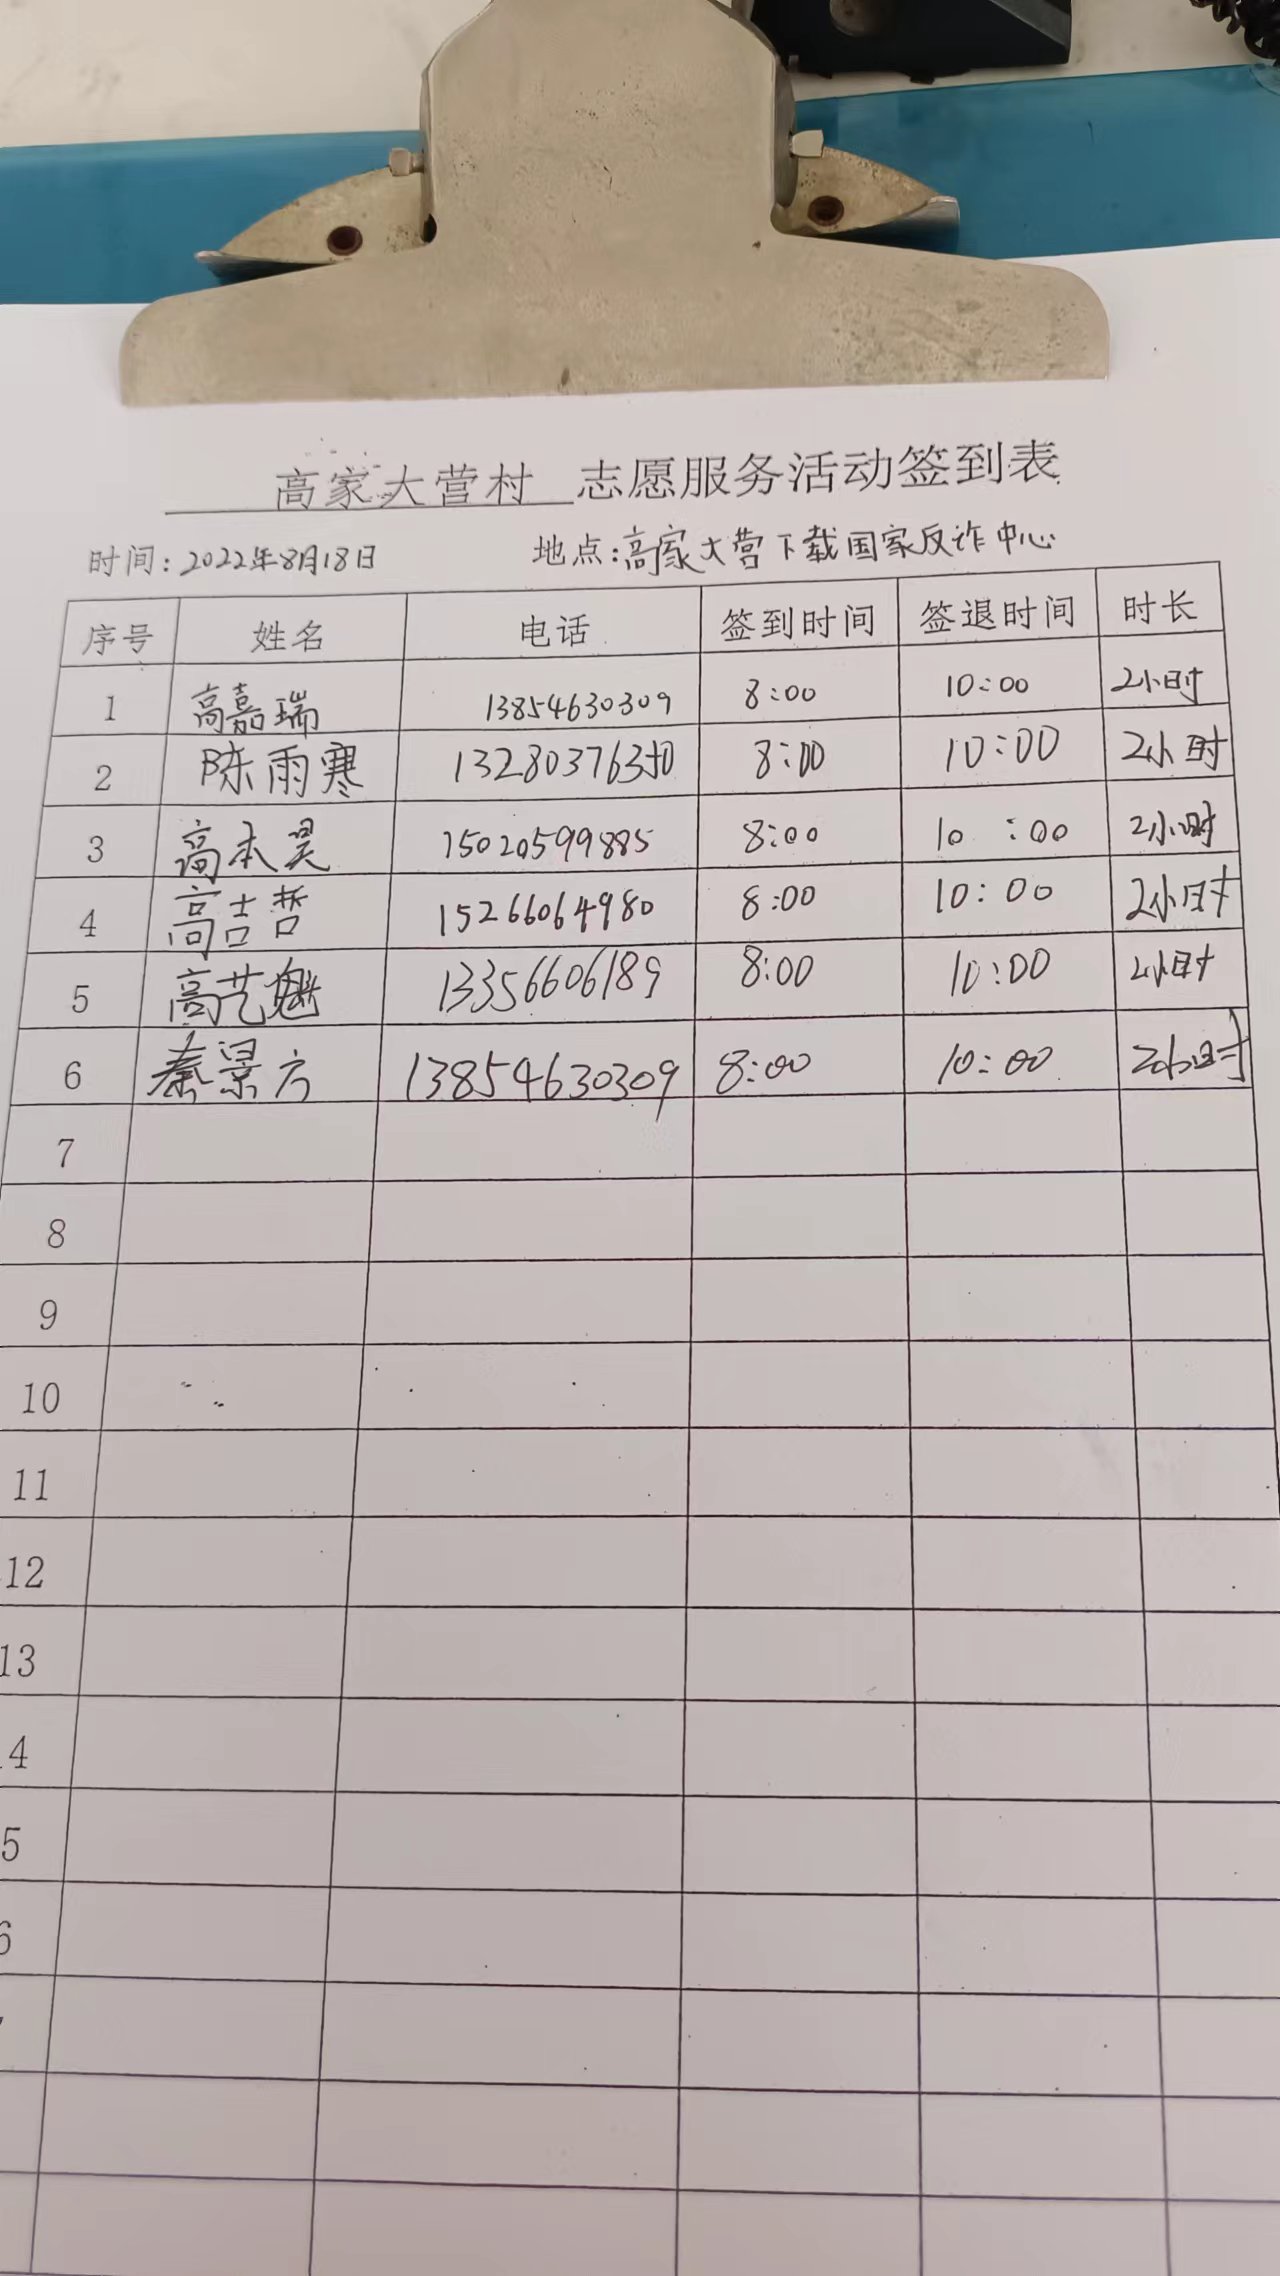 高家大营村 志愿服务活动签到表
时间：2022年8月18日 地点：高家大营下载国家反诈中心
序号 姓名 电话 签到时间 签退时间 时长
1 高嘉瑞 13854630309 8:00 10:00 2小时
2 陈雨寒 13280376350 8:00 10:00 2小时
3 高本昊 15020599885 8:00 10:00 2小时
4 高吉哲 15266064980 8:00 10:00 2小时
5 高艺魁 13356606189 8:00 10:00 2小时
6 秦景方 13854630309 8:00 10:00 2小时
7
8
9
10
11
12
13
4
5
6